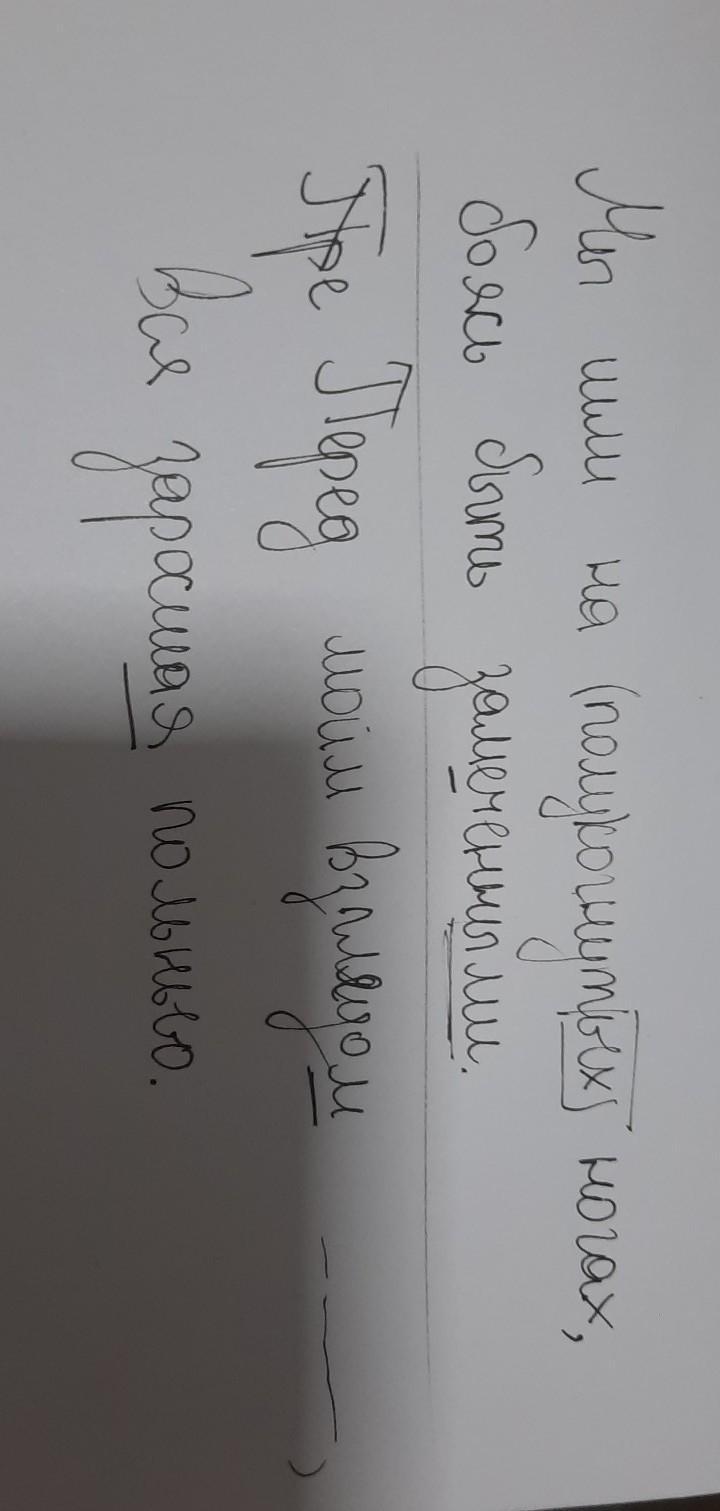 Мы шли на (полукогнутых) ногах,
боясь быть замеченными.
Пре Перед моим взглядом — — ,
Вся заросшая полынью.